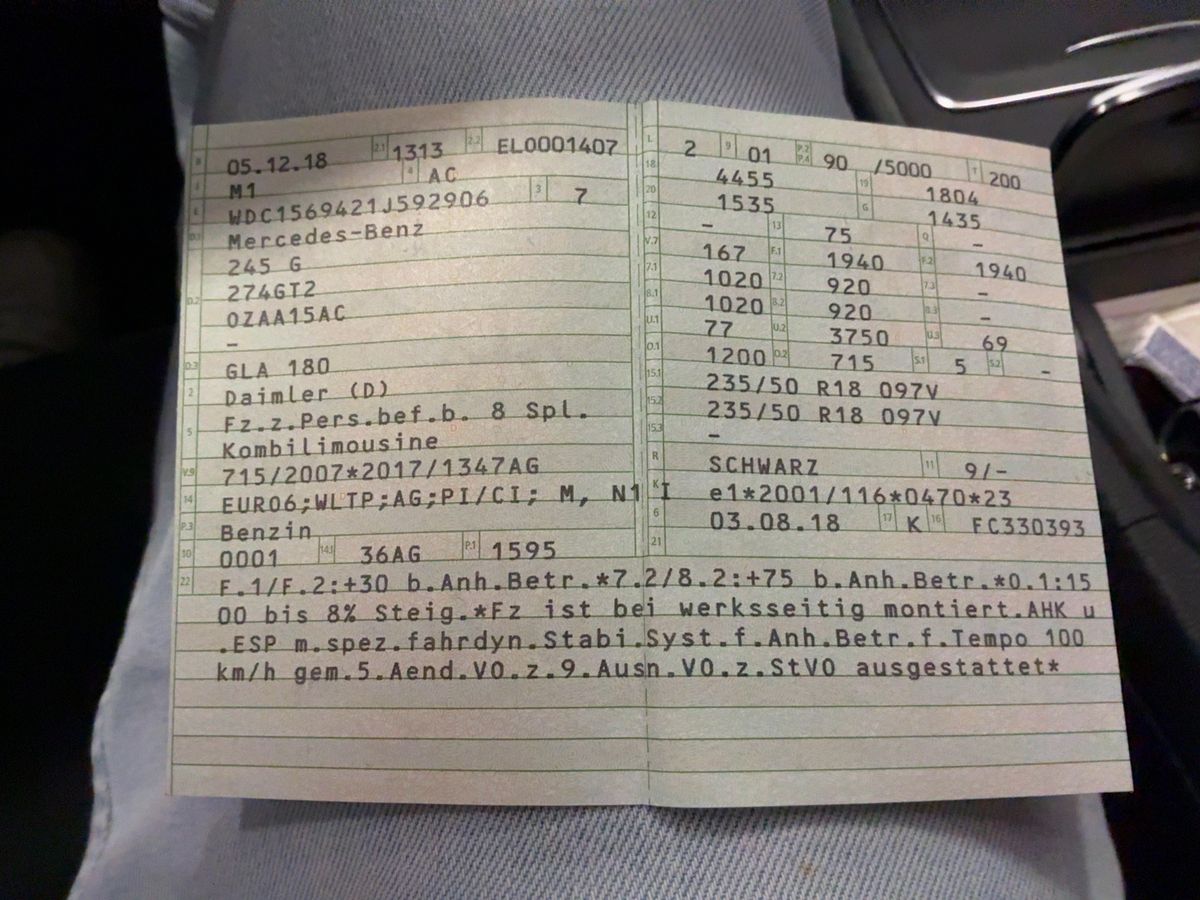 B 05.12.18 2.1 1313 2.2 EL0001407
J M1 4 AC
E WDC1569421J592906 3 7
D.1 Mercedes-Benz
245 G
D.2 274GT2
OZAA15AC
–
D.3 GLA 180
2 Daimler (D)
5 Fz.z.Pers.bef.b. 8 Spl.
Kombilimousine
V.9 715/2007*2017/1347AG
14 EURO6;WLTP;AG;PI/CI; M, N1 I
P.3 Benzin
10 0001 14.1 36AG P.1 1595
L 2 9 01 P.2 P.4 90 /5000 T 200
18 4455 19 1804
20 1535 G 1435
12 – 13 75 Q –
V.7 167 F.1 1940 F.2 1940
7.1 1020 7.2 920 7.3 –
8.1 1020 8.2 920 8.3 –
U.1 77 U.2 3750 U.3 69
O.1 1200 O.2 715 S.1 5 S.2 –
15.1 235/50 R18 097V
15.2 235/50 R18 097V
15.3 –
R SCHWARZ 11 9/-
K e1*2001/116*0470*23
6 03.08.18 17 K 16 FC330393
21
22 F.1/F.2:+30 b.Anh.Betr.*7.2/8.2:+75 b.Anh.Betr.*O.1:15
00 bis 8% Steig.*Fz ist bei werksseitig montiert.AHK u
.ESP m.spez.fahrdyn.Stabi.Syst.f.Anh.Betr.f.Tempo 100
km/h gem.5.Aend.VO.z.9.Ausn.VO.z.StVO ausgestattet*